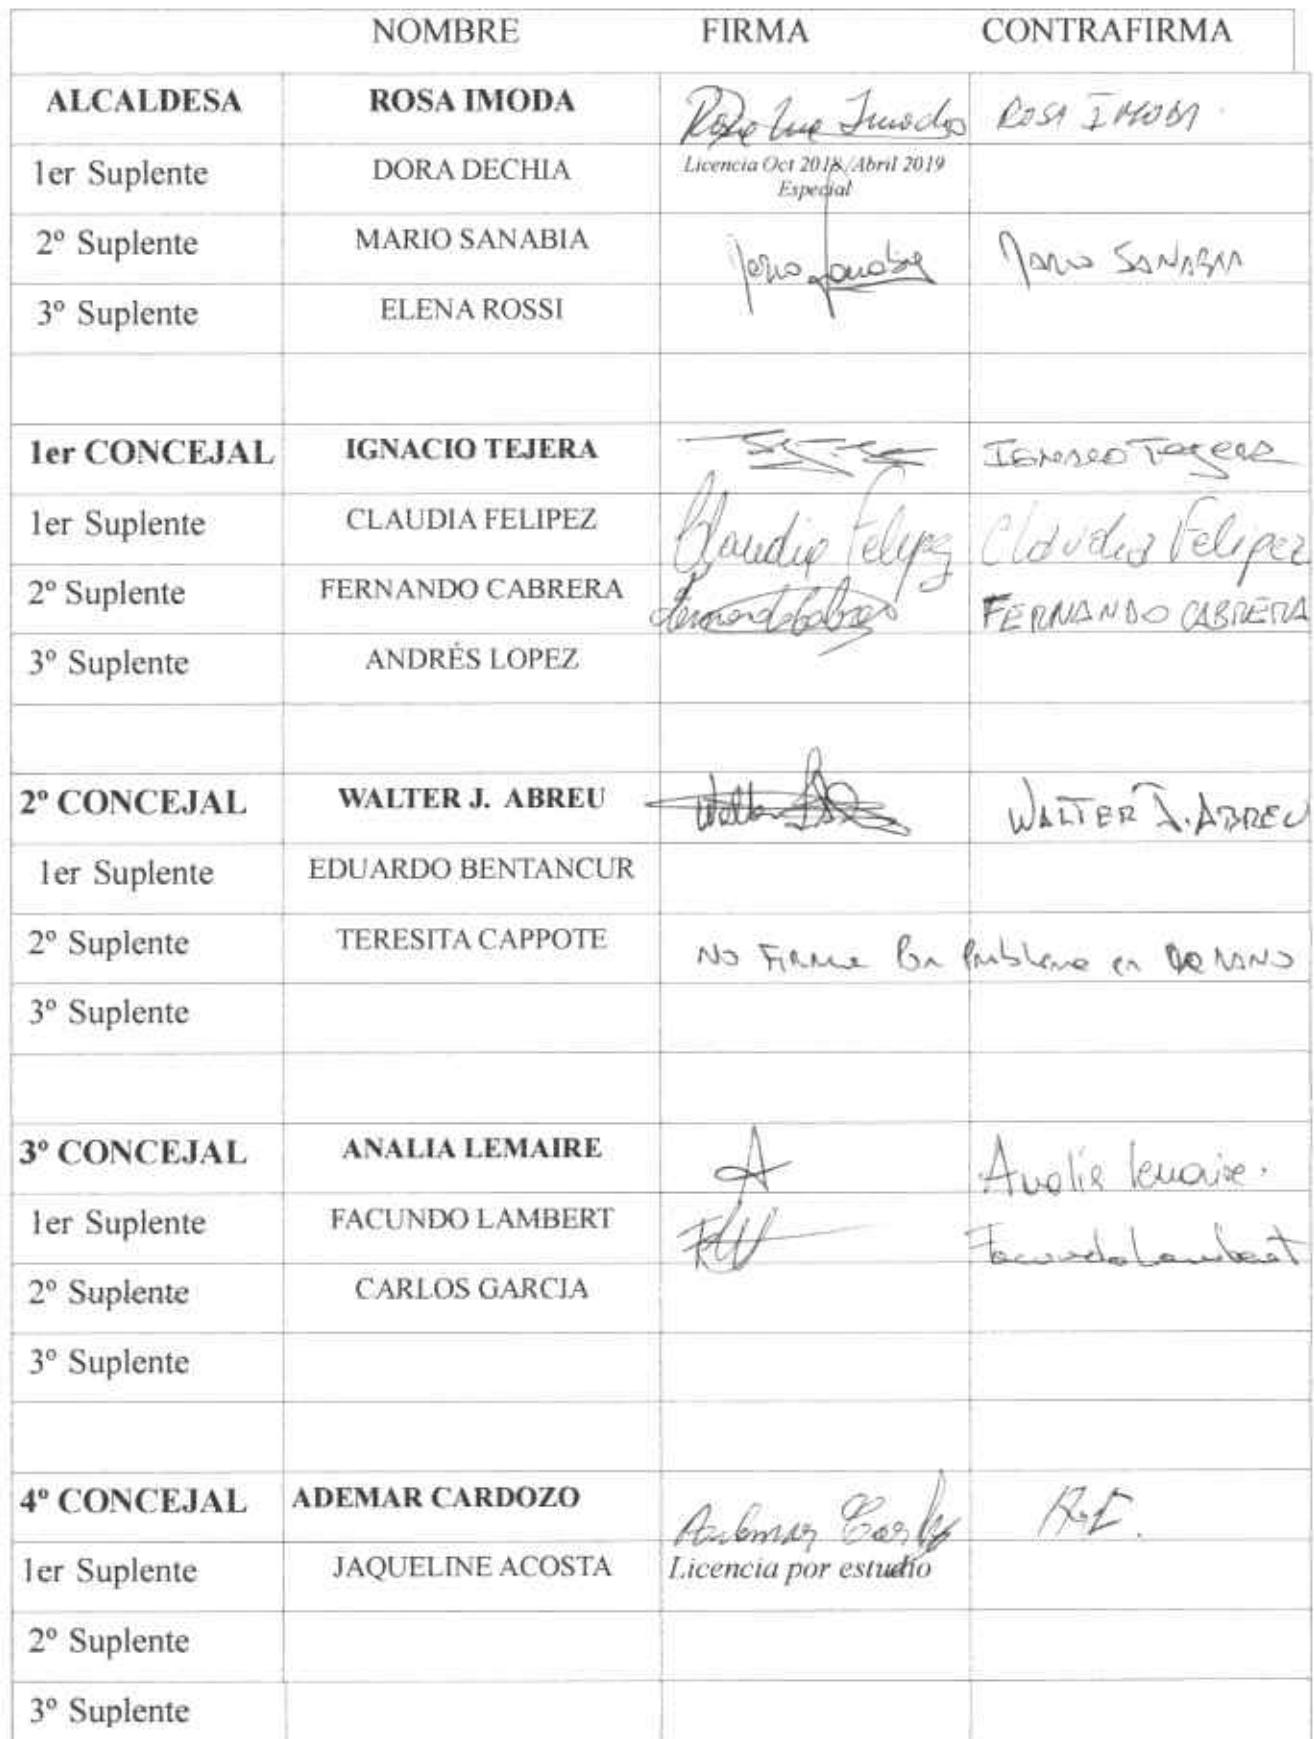 NOMBRE FIRMA CONTRAFIRMA
ALCALDESA ROSA IMODA Rosa Imoda ROSA IMODA
1er Suplente DORA DECHIA Licencia Oct 2018/Abril 2019
Especial
2º Suplente MARIO SANABIA Mario Sanabia MARIO SANABIA
3º Suplente ELENA ROSSI
1er CONCEJAL IGNACIO TEJERA IGNACIO TEJERA
1er Suplente CLAUDIA FELIPEZ Claudia Felipez Claudia Felipez
2º Suplente FERNANDO CABRERA Fernando Cabrera FERNANDO CABRERA
3º Suplente ANDRÉS LOPEZ
2º CONCEJAL WALTER J. ABREU Walter WALTER J. ABREU
1er Suplente EDUARDO BENTANCUR
2º Suplente TERESITA CAPPOTE NO FIRMA POR Problema en MANO
3º Suplente
3º CONCEJAL ANALIA LEMAIRE A Analia lemaire.
1er Suplente FACUNDO LAMBERT Facundo Lambert
2º Suplente CARLOS GARCIA
3º Suplente
4º CONCEJAL ADEMAR CARDOZO Ademar
1er Suplente JAQUELINE ACOSTA Licencia por estudio
2º Suplente
3º Suplente